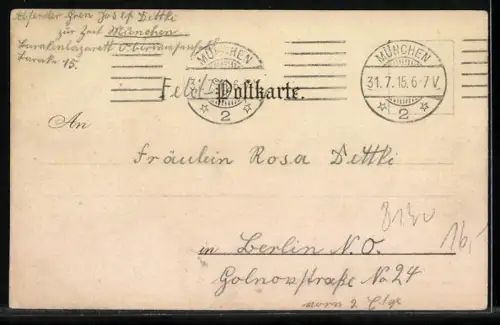 Absender Gren Josef Dettki
zur Zeit München
Barackenlazarett
Baracke 15.
MÜNCHEN
2
MÜNCHEN
31.7.15.6-7V.
2
Feld-Postkarte.
An
Fräulein Rosa Dettki
in Berlin N.O.
Golnowstraße No 24
vorn 2 Etge
16,-